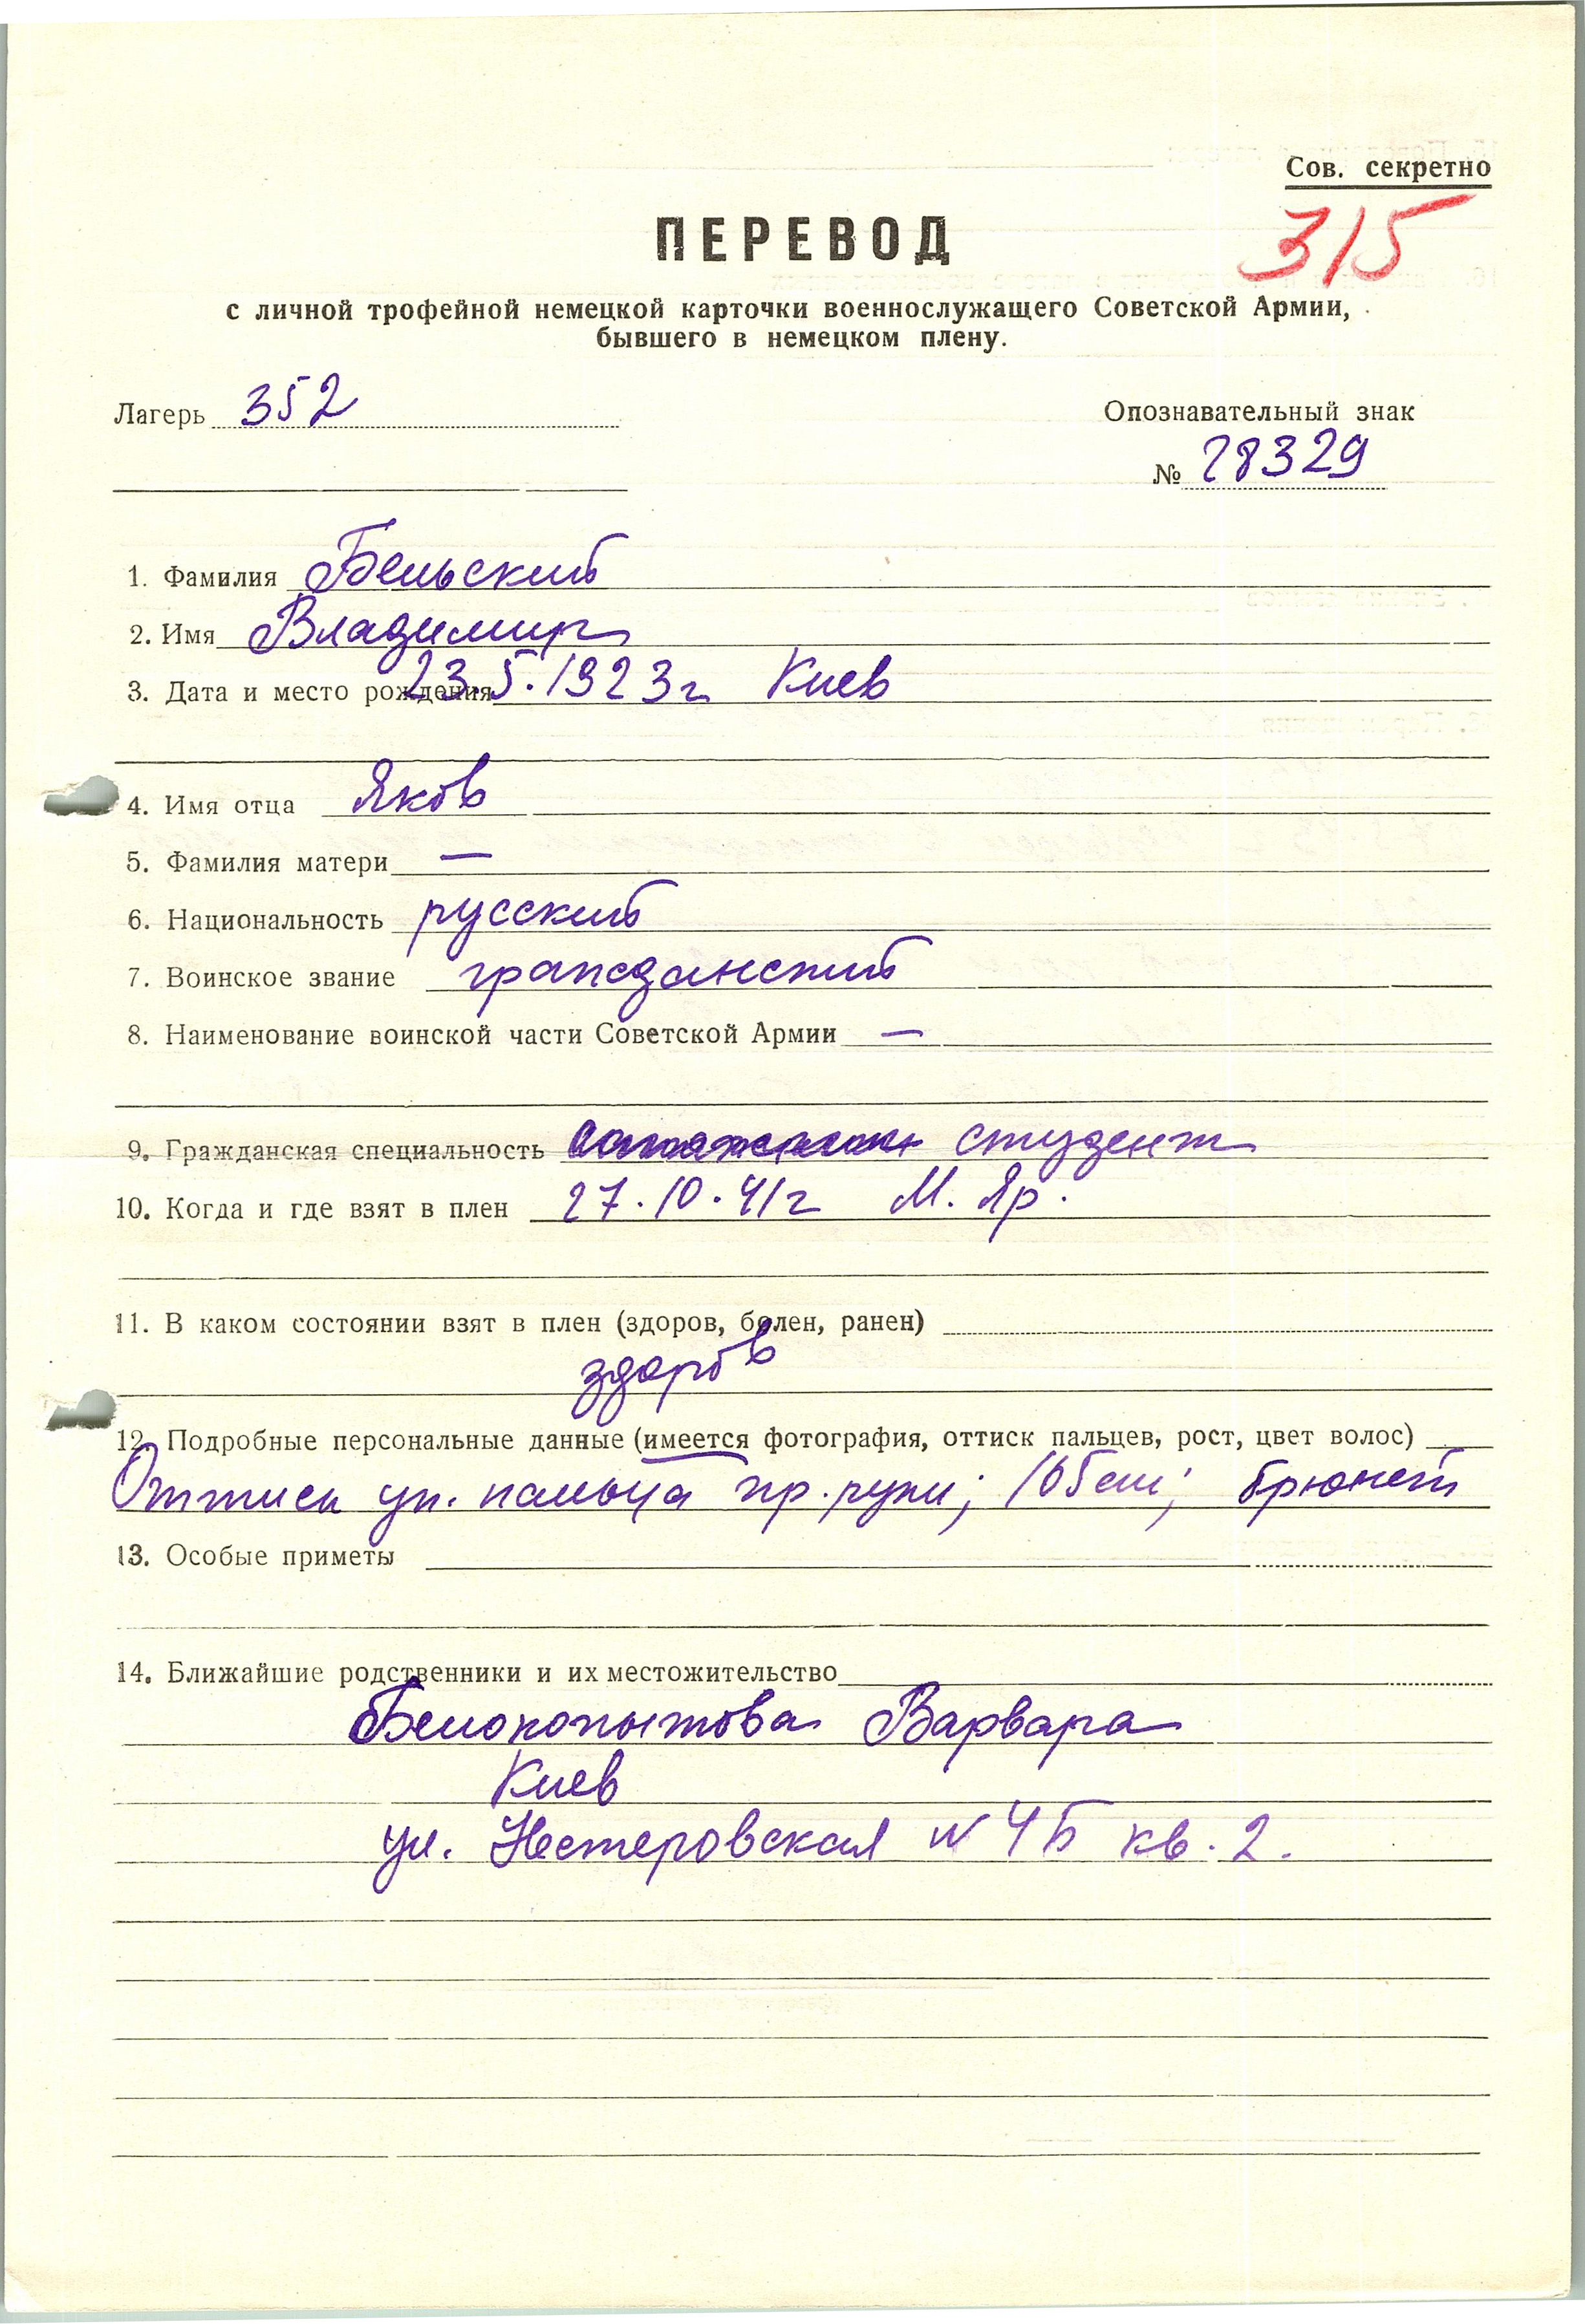 Сов. секретно
315
ПЕРЕВОД
с личной трофейной немецкой карточки военнослужащего Советской Армии,
бывшего в немецком плену.
Лагерь 352
Опознавательный знак
№ 28329
1. Фамилия Бельский
2. Имя Владимир
3. Дата и место рождения 23.5.1923г Киев
4. Имя отца Яков
5. Фамилия матери —
6. Национальность русский
7. Воинское звание гражданский
8. Наименование воинской части Советской Армии —
9. Гражданская специальность студент
10. Когда и где взят в плен 27.10.41г М. Яр.
11. В каком состоянии взят в плен (здоров, болен, ранен)
здоров
12. Подробные персональные данные (имеется фотография, оттиск пальцев, рост, цвет волос)
Оттиск ук. пальца пр. руки; 165см; брюнет
13. Особые приметы
14. Ближайшие родственники и их местожительство
Белокопытова Варвара
Киев
ул. Нестеровская № 4Б кв. 2.